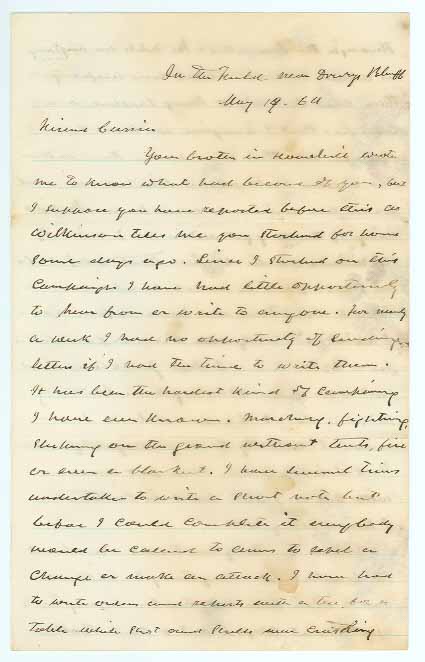 In the Field near Drurys Bluff
May 19. 64
Friend Currier
Your brother in Haverhill wrote
me to know what had become of you, but
I suppose you have reported before this as
Wilkinson tells me you started for home
some days ago. Since I started on this
Campaign I have had little opportunity
to hear from or write to anyone. For nearly
a week I had no opportunity of sending
letters if I had the time to write them.
It has been the hardest kind of Campaigning
I have ever known. Marching, fighting,
sleeping on the ground without tents, fire
or even a blanket. I have several times
undertaken to write a short note but
before I could complete it everybody
would be called to arms to repel a
charge or make an attack. I have had
to write orders and reports with a for a
table while shot and shells were crashing